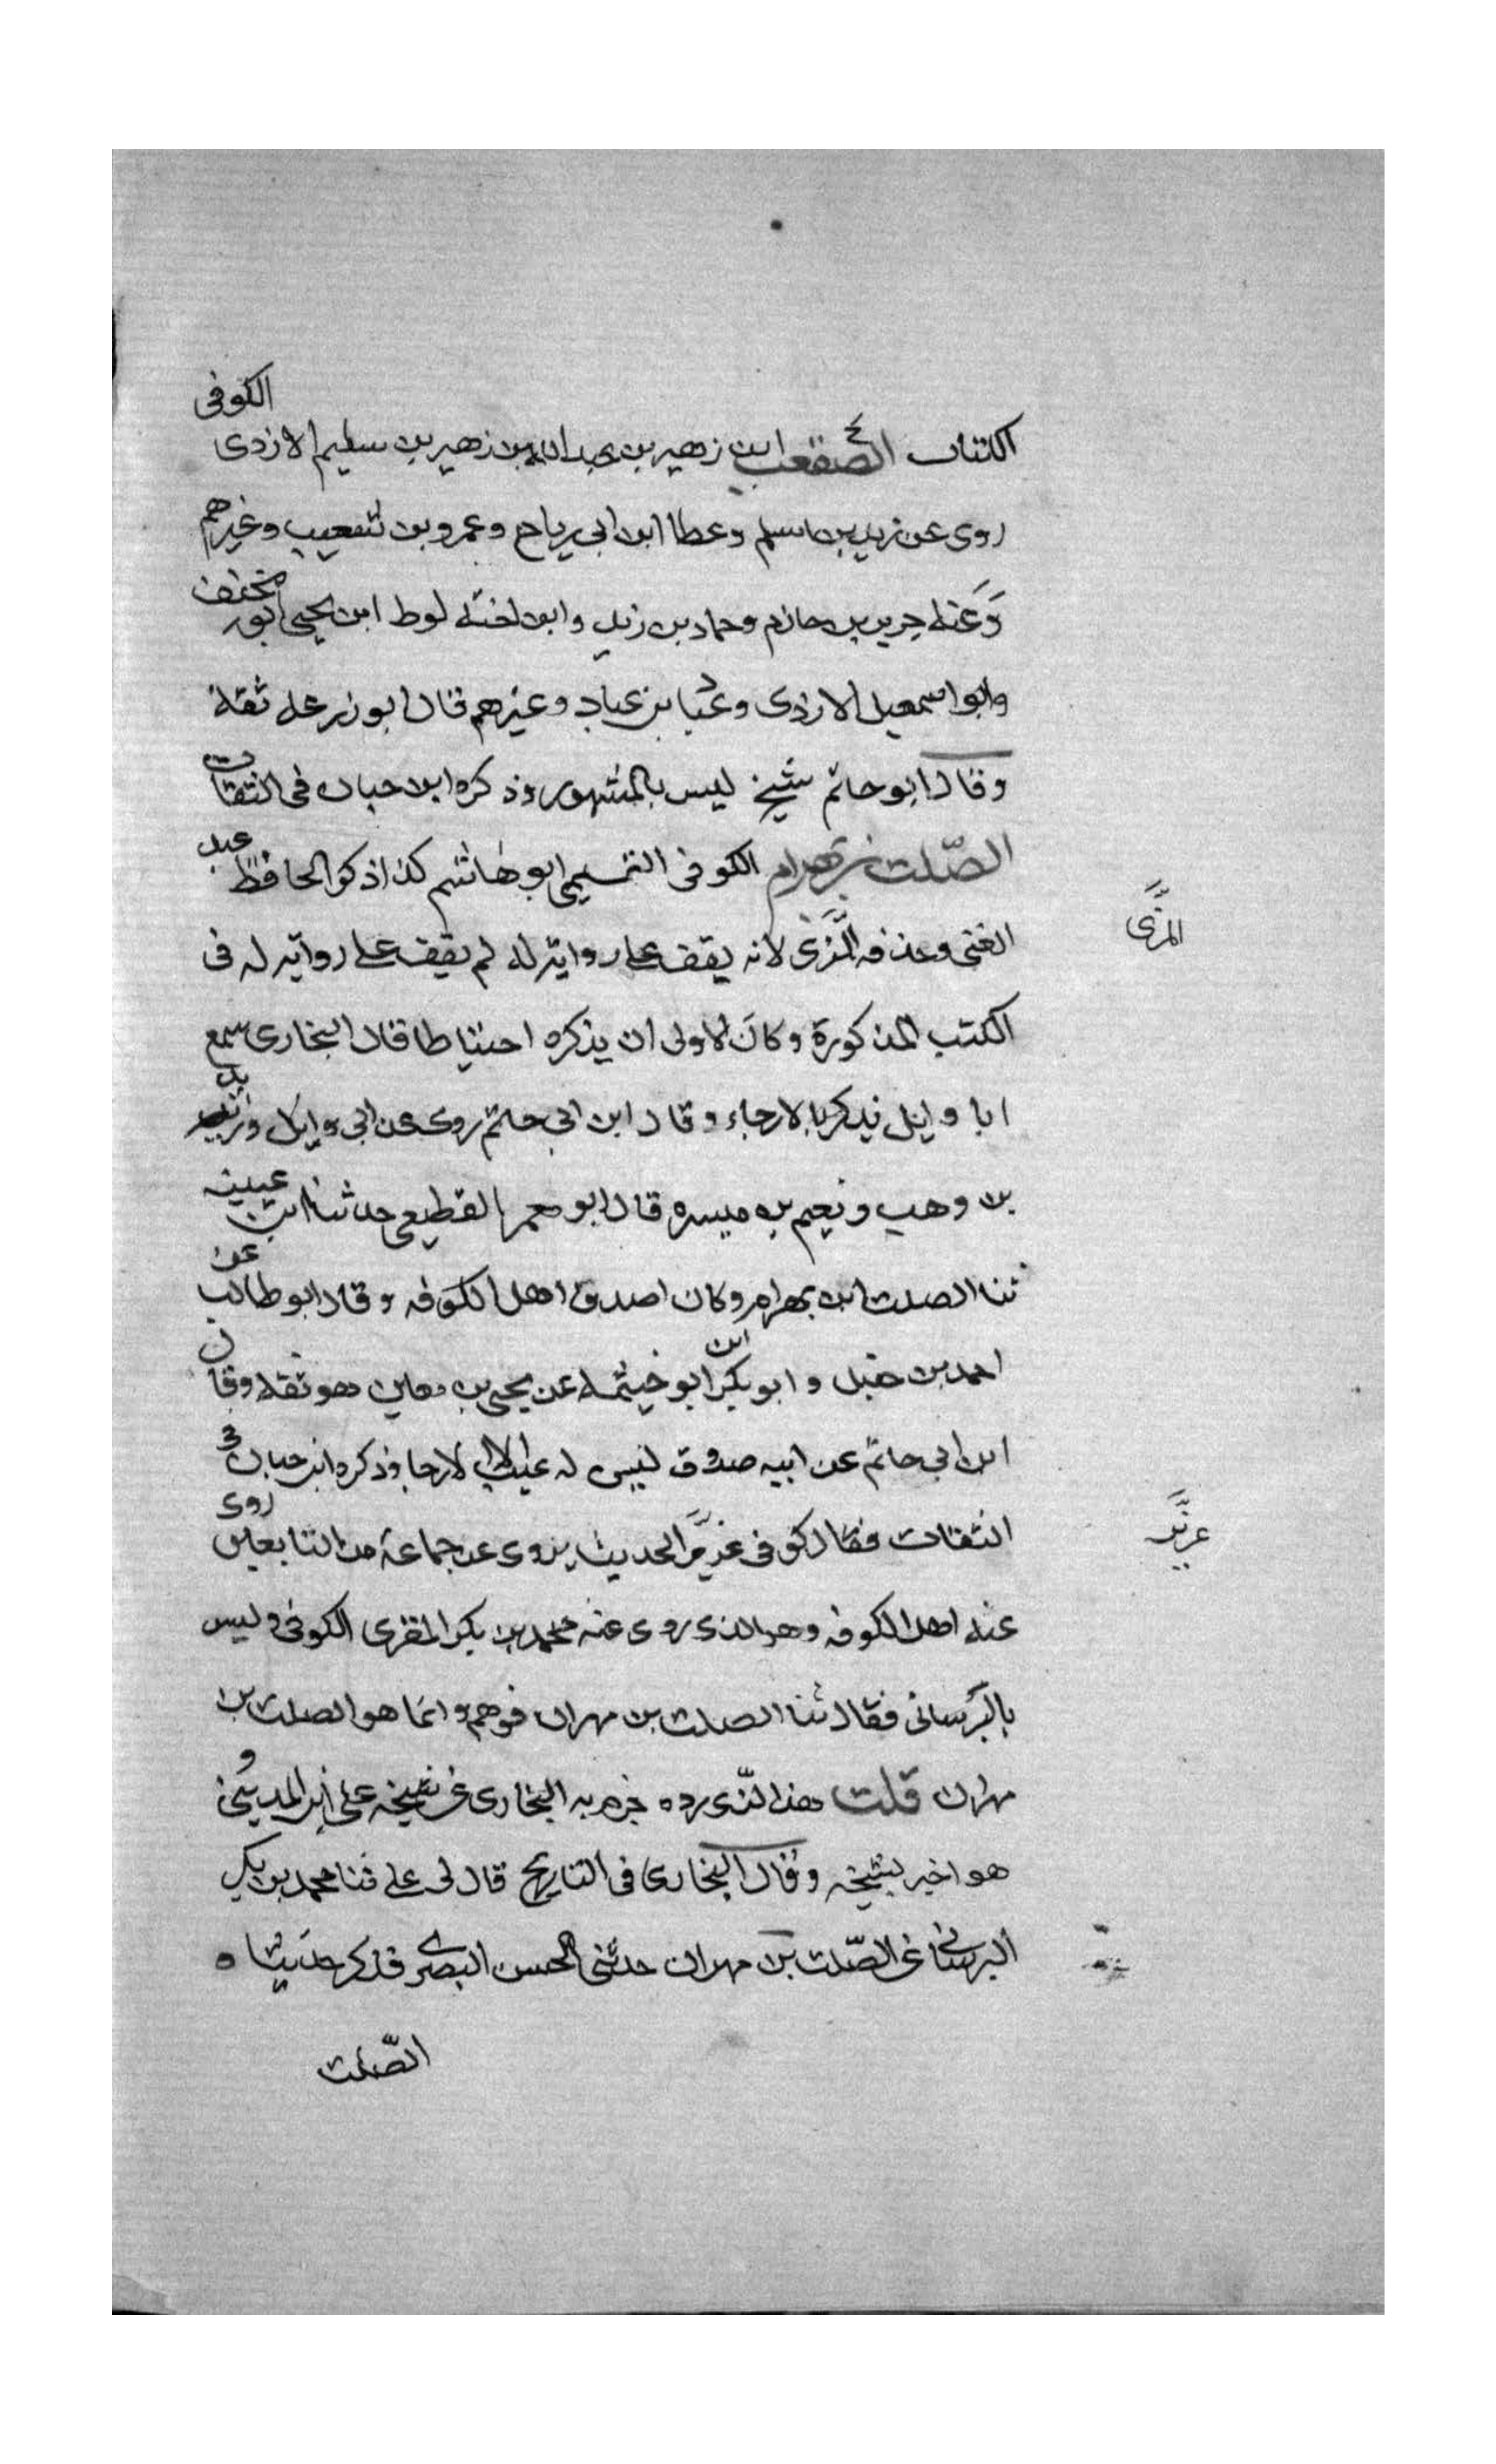 الكتاب الصقعب ابن زهير بن عبد الله بن زهير بن سليم الازدى الكوفى
روى عن زيد بن اسلم وعطا ابن ابى رباح وعمرو بن شعيب وغيرهم
وعنه جرير بن حازم وحماد بن زيد وابن اخته لوط ابن يحيى ابو مخنف
وابو اسمعيل الازدى وعباد بن عباد وغيرهم قال ابو زرعه ثقة
وقال ابو حاتم شيخ ليس بالمشهور وذكره ابن حبان فى الثقات
الصّلت بن بهرام الكوفى التميمى ابو هاشم كذا ذكر الحافظ عبد
الغنى وحذفه المزّى لانه يقف على روايته له لم يقف على روايته له فى
المزّى
الكتب المذكورة وكان الاولى ان يذكره احتياطا قال البخارى سمع
ابا وايل يذكر بالارجاء وقال ابن ابى حاتم روى عن ابى وايل وزيد
بن وهب ونعيم بن ميسره قال ابو معمر القطيعى حدثنا ابن عيينه
ثنا الصلت ابن بهرام وكان اصدق اهل الكوفه وقال ابو طالب عن
احمد بن حنبل وابو بكر ابن ابو خيثمه عن يحيى بن معين هو ثقه وقال
ابن ابى حاتم عن ابيه صدوق ليس له عيب الا الارجا وذكره ابن حبان فى
الثقات فقال كوفى عزيز الحديث يروى عن جماعة من التابعين روى
عزيز
عنه اهل الكوفه وهو الذى روى عنه محمد بن بكر المقرى الكوفى وليس
بالبرسانى فقال ثنا الصلت بن مهران فوهم وانما هو الصلت بن
مهران قلت هذا الذى رده جزم به البخارى عن شيخه على ابن المدينى و
هو اخبر بشيخه وقال البخارى فى التاريخ قال لى على ثنا محمد بن بكر
البرسانى عن الصّلت بن مهران حدثنى الحسن البصرى فذكر حديثا ه
الصّلت